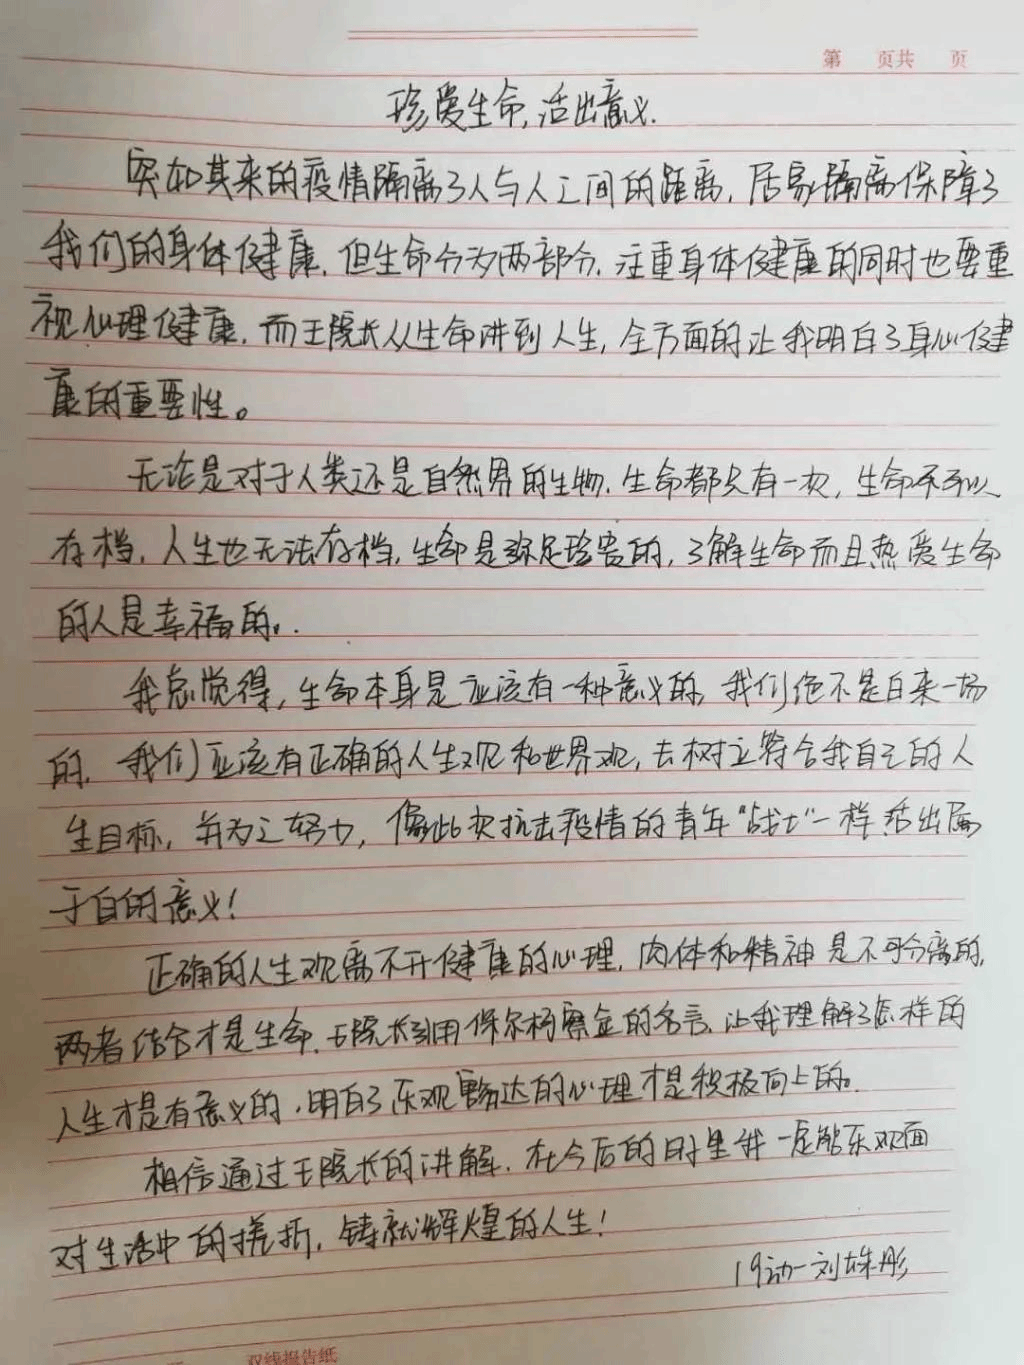 第 页共 页
珍爱生命,活出意义.
突如其来的疫情隔离了人与人之间的距离,居家隔离保障了
我们的身体健康,但生命分为两部分,注重身体健康的同时也要重
视心理健康,而王院长从生命讲到人生,全方面的让我明白了身心健
康的重要性。
无论是对于人类还是自然界的生物,生命都只有一次,生命不可以
存档,人生也无法存档,生命是弥足珍贵的,了解生命而且热爱生命
的人是幸福的。
我总觉得,生命本身是应该有一种意义的,我们绝不是白来一场
的,我们应该有正确的人生观和世界观,去树立符合我自己的人
生目标,并为之努力,像此次抗击疫情的青年“战士”一样活出属
于自的意义!
正确的人生观离不开健康的心理,肉体和精神是不可分离的,
两者结合才是生命,王院长引用保尔柯察金的名言,让我理解了怎样的
人生才是有意义的,明白了乐观豁达的心理才是积极向上的。
相信通过王院长的讲解,在今后的时里我一定能乐观面
对生活中的挫折,铸就辉煌的人生!
19动一刘姝彤
双线报告纸